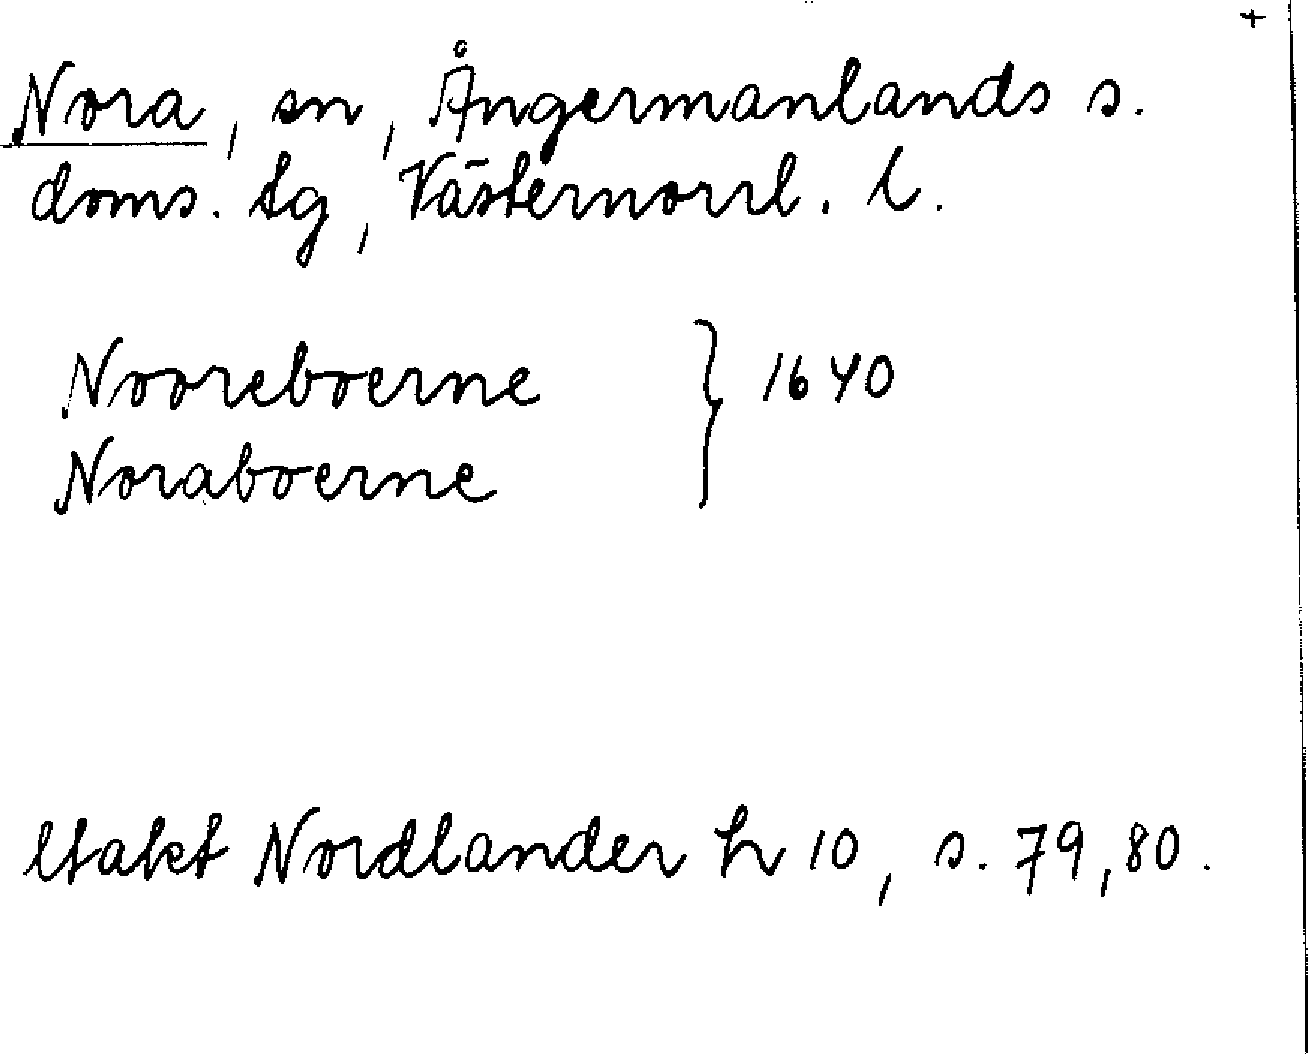 +
Nora, sn, Ångermanlands s.
doms. tg, Västernorrl. l.
Nooreboerne } 1640
Noraboerne
Utakt Nordlander h 10, s. 79, 80.